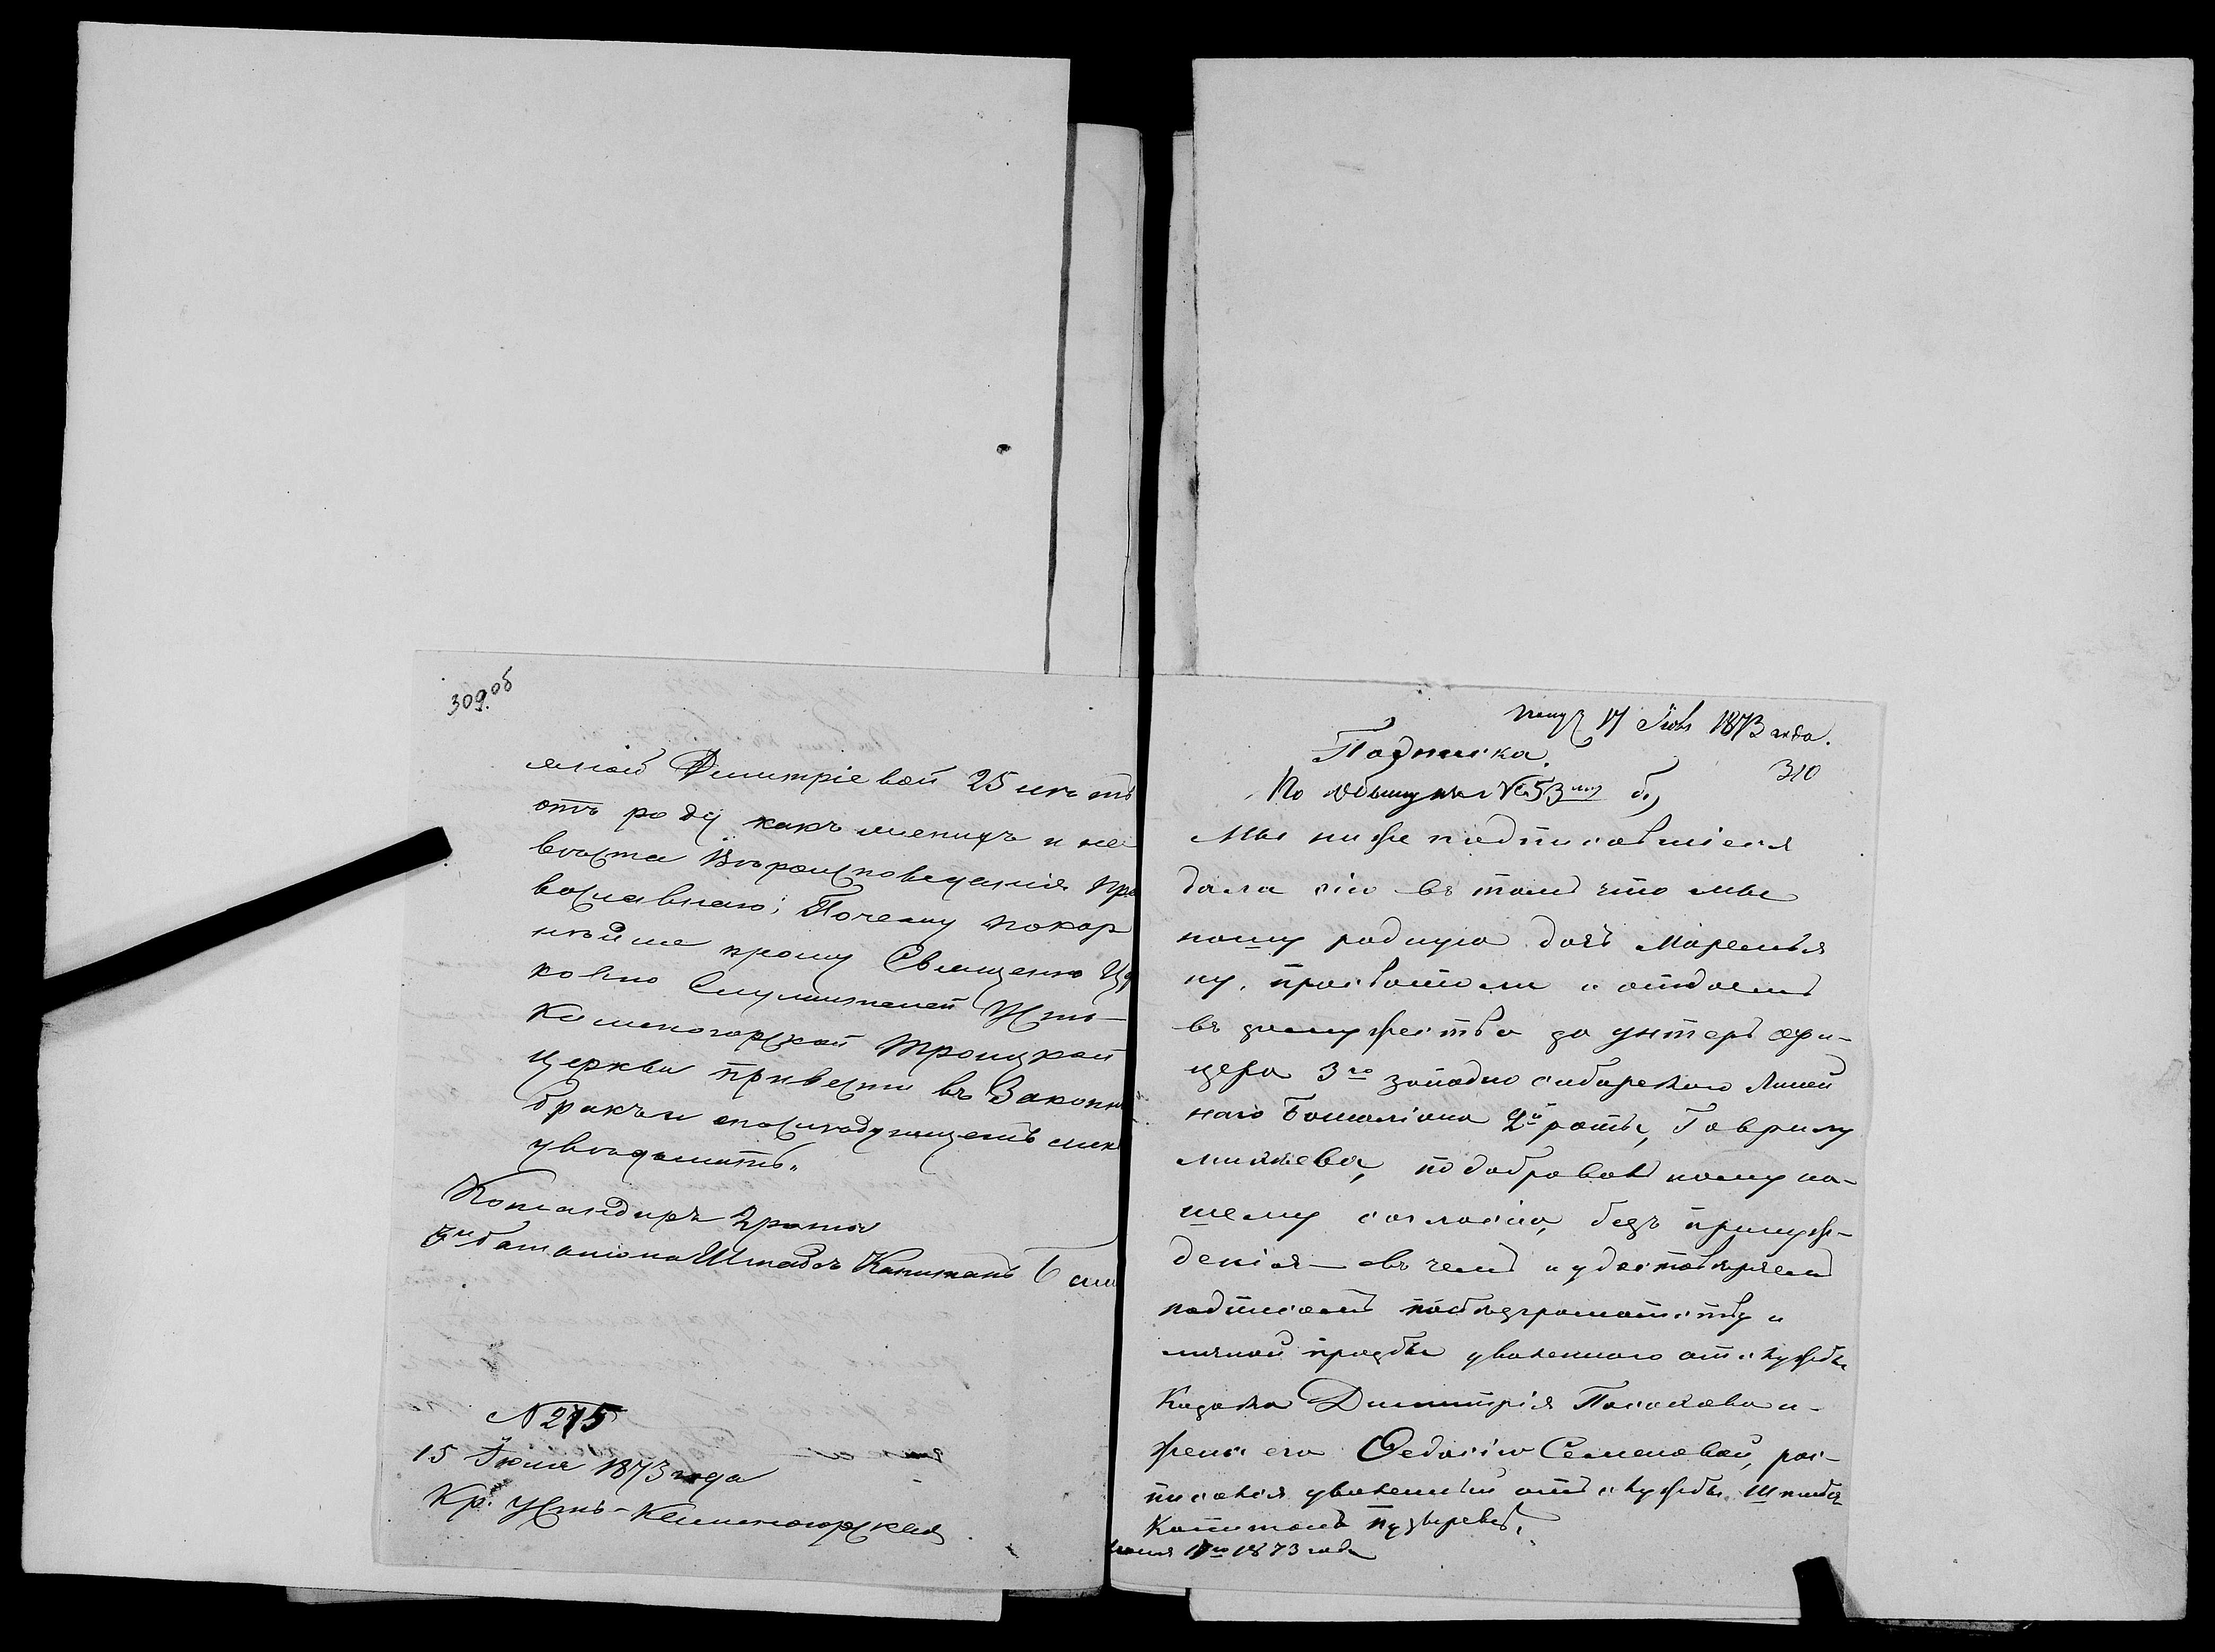 309.об
яной Димитріевой 25 лѣтъ
отъ роду какъ женихъ и не
вѣста Вѣроисповеданія Пра
вославнаго; Почему покор
нѣйше прошу Священно Цер
ковно Служителей Усть-
Каменогорской Троицкой
церкви привести въ Законн
бракъ и о послѣдующемъ мнѣ
увѣдомить.
Командиръ 2 роты
3го баталіона Штабсъ Капитанъ
N 215
15 Іюня 1873 года
Кр. Усть-Каменогорская
17 1873 года.
310
Подписка.
По обыску № 53
Мы ниже подписавшіеся
дали сію въ томъ что мы
нашу родную дочь Маремья
ну, просватали и отдаемъ
въ замужество за унтеръ офи-
цера 3го западно сибирскаго Линей
наго Баталіона 2й роты, Гаврилу
по добровольному на-
шему согласію, безъ принуж-
денія въ чемъ и удостовѣряемъ
подписомъ по безграматству и
личной прозбы уволеннаго отъ службы
Казака Димитрія и
жены его Федосіи Семеновой, рос-
писался уволенный отъ службы Штабсъ
Капитанъ Пузыревъ,
Іюня 17го 1873 года